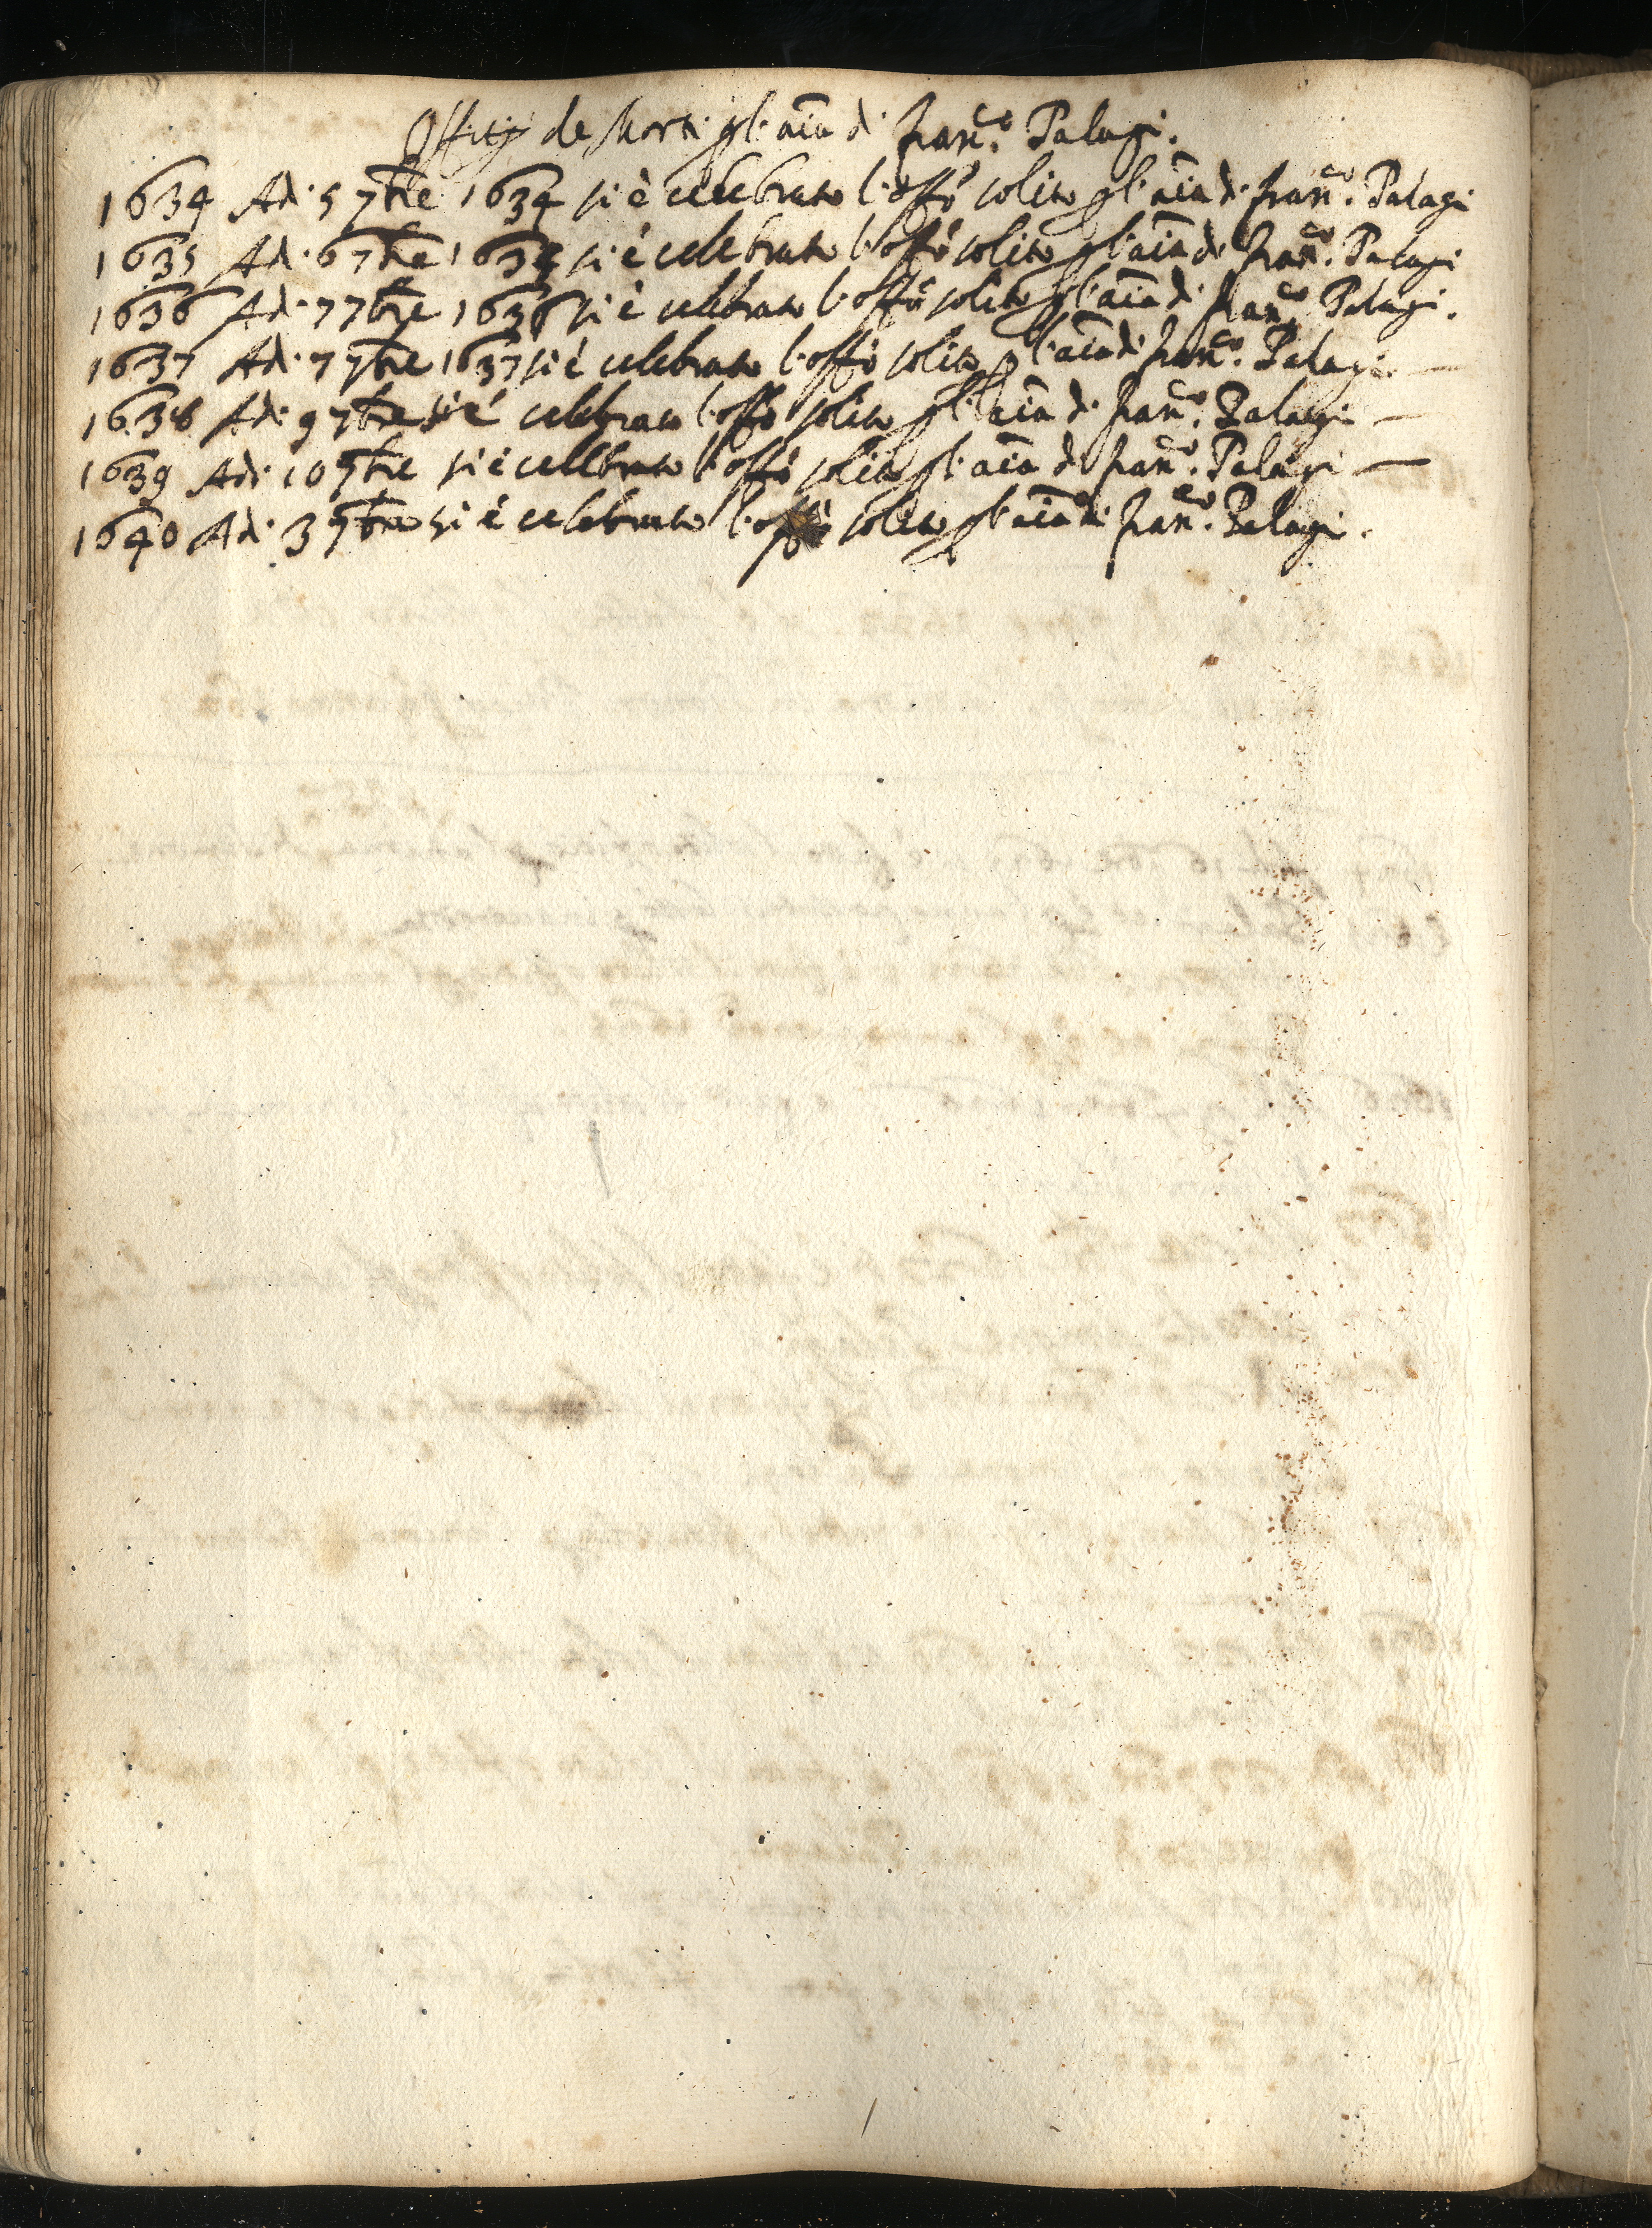 Offitij de Morti p l'aĩa di Franc̃o. Palagi.
1634 Adi 5 7bre 1634 si è celebrato l'offo solito p l'aĩa di Franc̃o. Palagi
1635 Adi 6 7bre 1635 si è celebrato l'offo solito p l'aĩa di Franc̃o. Palagi
1636 Adi 7 7bre 1636 si è celebrato l'offo solito p l'aĩa di Franc̃o. Palagi.
1637 Adi 7 7bre 1637 si è celebrato l'offo solito p l'aĩa di Franc̃o. Palagi —
1638 Adi 9 7bre si è celebrato l'offo solito p l'aĩa di Franc̃o. Palagi —
1639 Adi 10 9bre si è cellebrato l'offo solito p l'aĩa di Franc̃o. Palagi —
1640 Adi 3 9bre si è celebrato l'offo solito p l'aĩa di Franc̃o. Palagi.